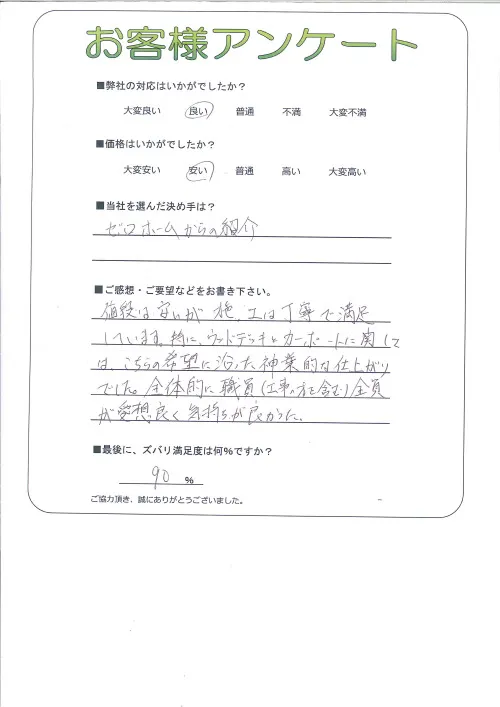 お客様アンケート
■弊社の対応はいかがでしたか？
大変良い 良い 普通 不満 大変不満
■価格はいかがでしたか？
大変安い 安い 普通 高い 大変高い
■当社を選んだ決め手は？
ゼロホームからの紹介
■ご感想・ご要望などをお書き下さい。
値段は安いが施工は丁寧で満足
しています。特に、ウッドデッキとカーポートに関して
は、こちらの希望に沿った神業的な仕上がり
でした。全体的に職員(工事の方を含む)全員
が愛想良く気持ちが良かった。
■最後に、ズバリ満足度は何%ですか？
90 %
ご協力頂き、誠にありがとうございました。